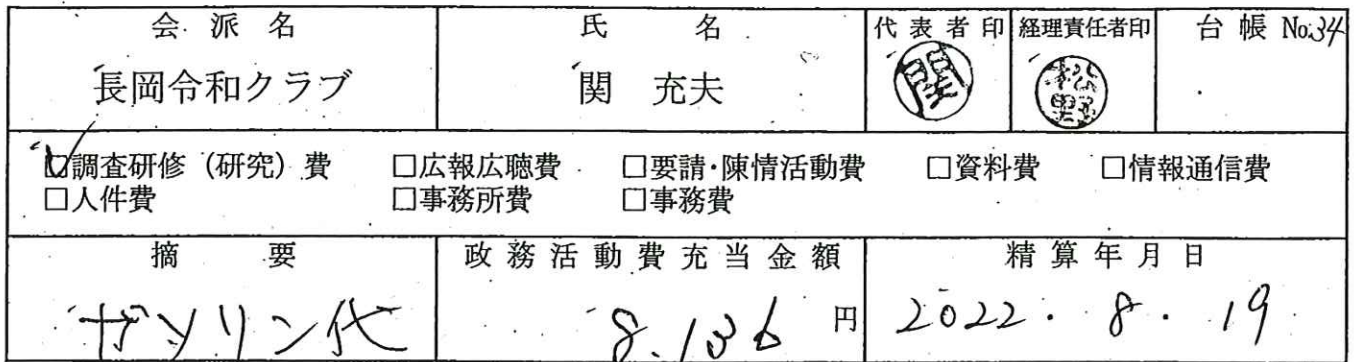 会派名 氏名 代表者印 経理責任者印 台帳 No.34
長岡令和クラブ 関 充夫 関 松野
☑調査研修（研究）費 □広報広聴費 □要請・陳情活動費 □資料費 □情報通信費
□人件費 □事務所費 □事務費
摘要 政務活動費充当金額 精算年月日
ガソリン代 8,136 円 2022. 8. 19